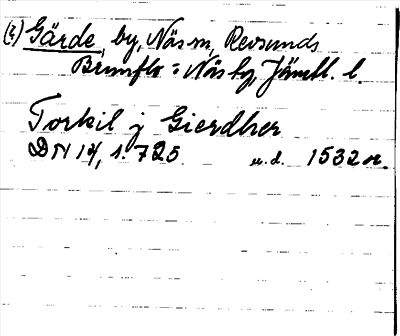 (2) Gärde, by, Näs sn, Revsunds
Brunflo = Näs tg, Jämtl. l.
Torkil j Gierdher
DN 14, 1. 725 u.d. 1532 n.